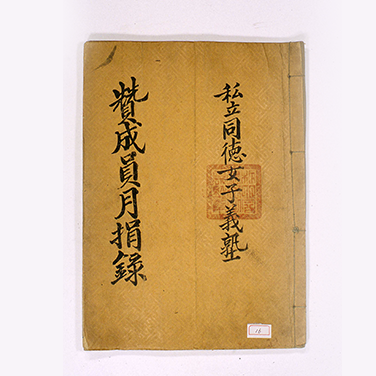 私立同德女子義塾
贊成員月捐錄